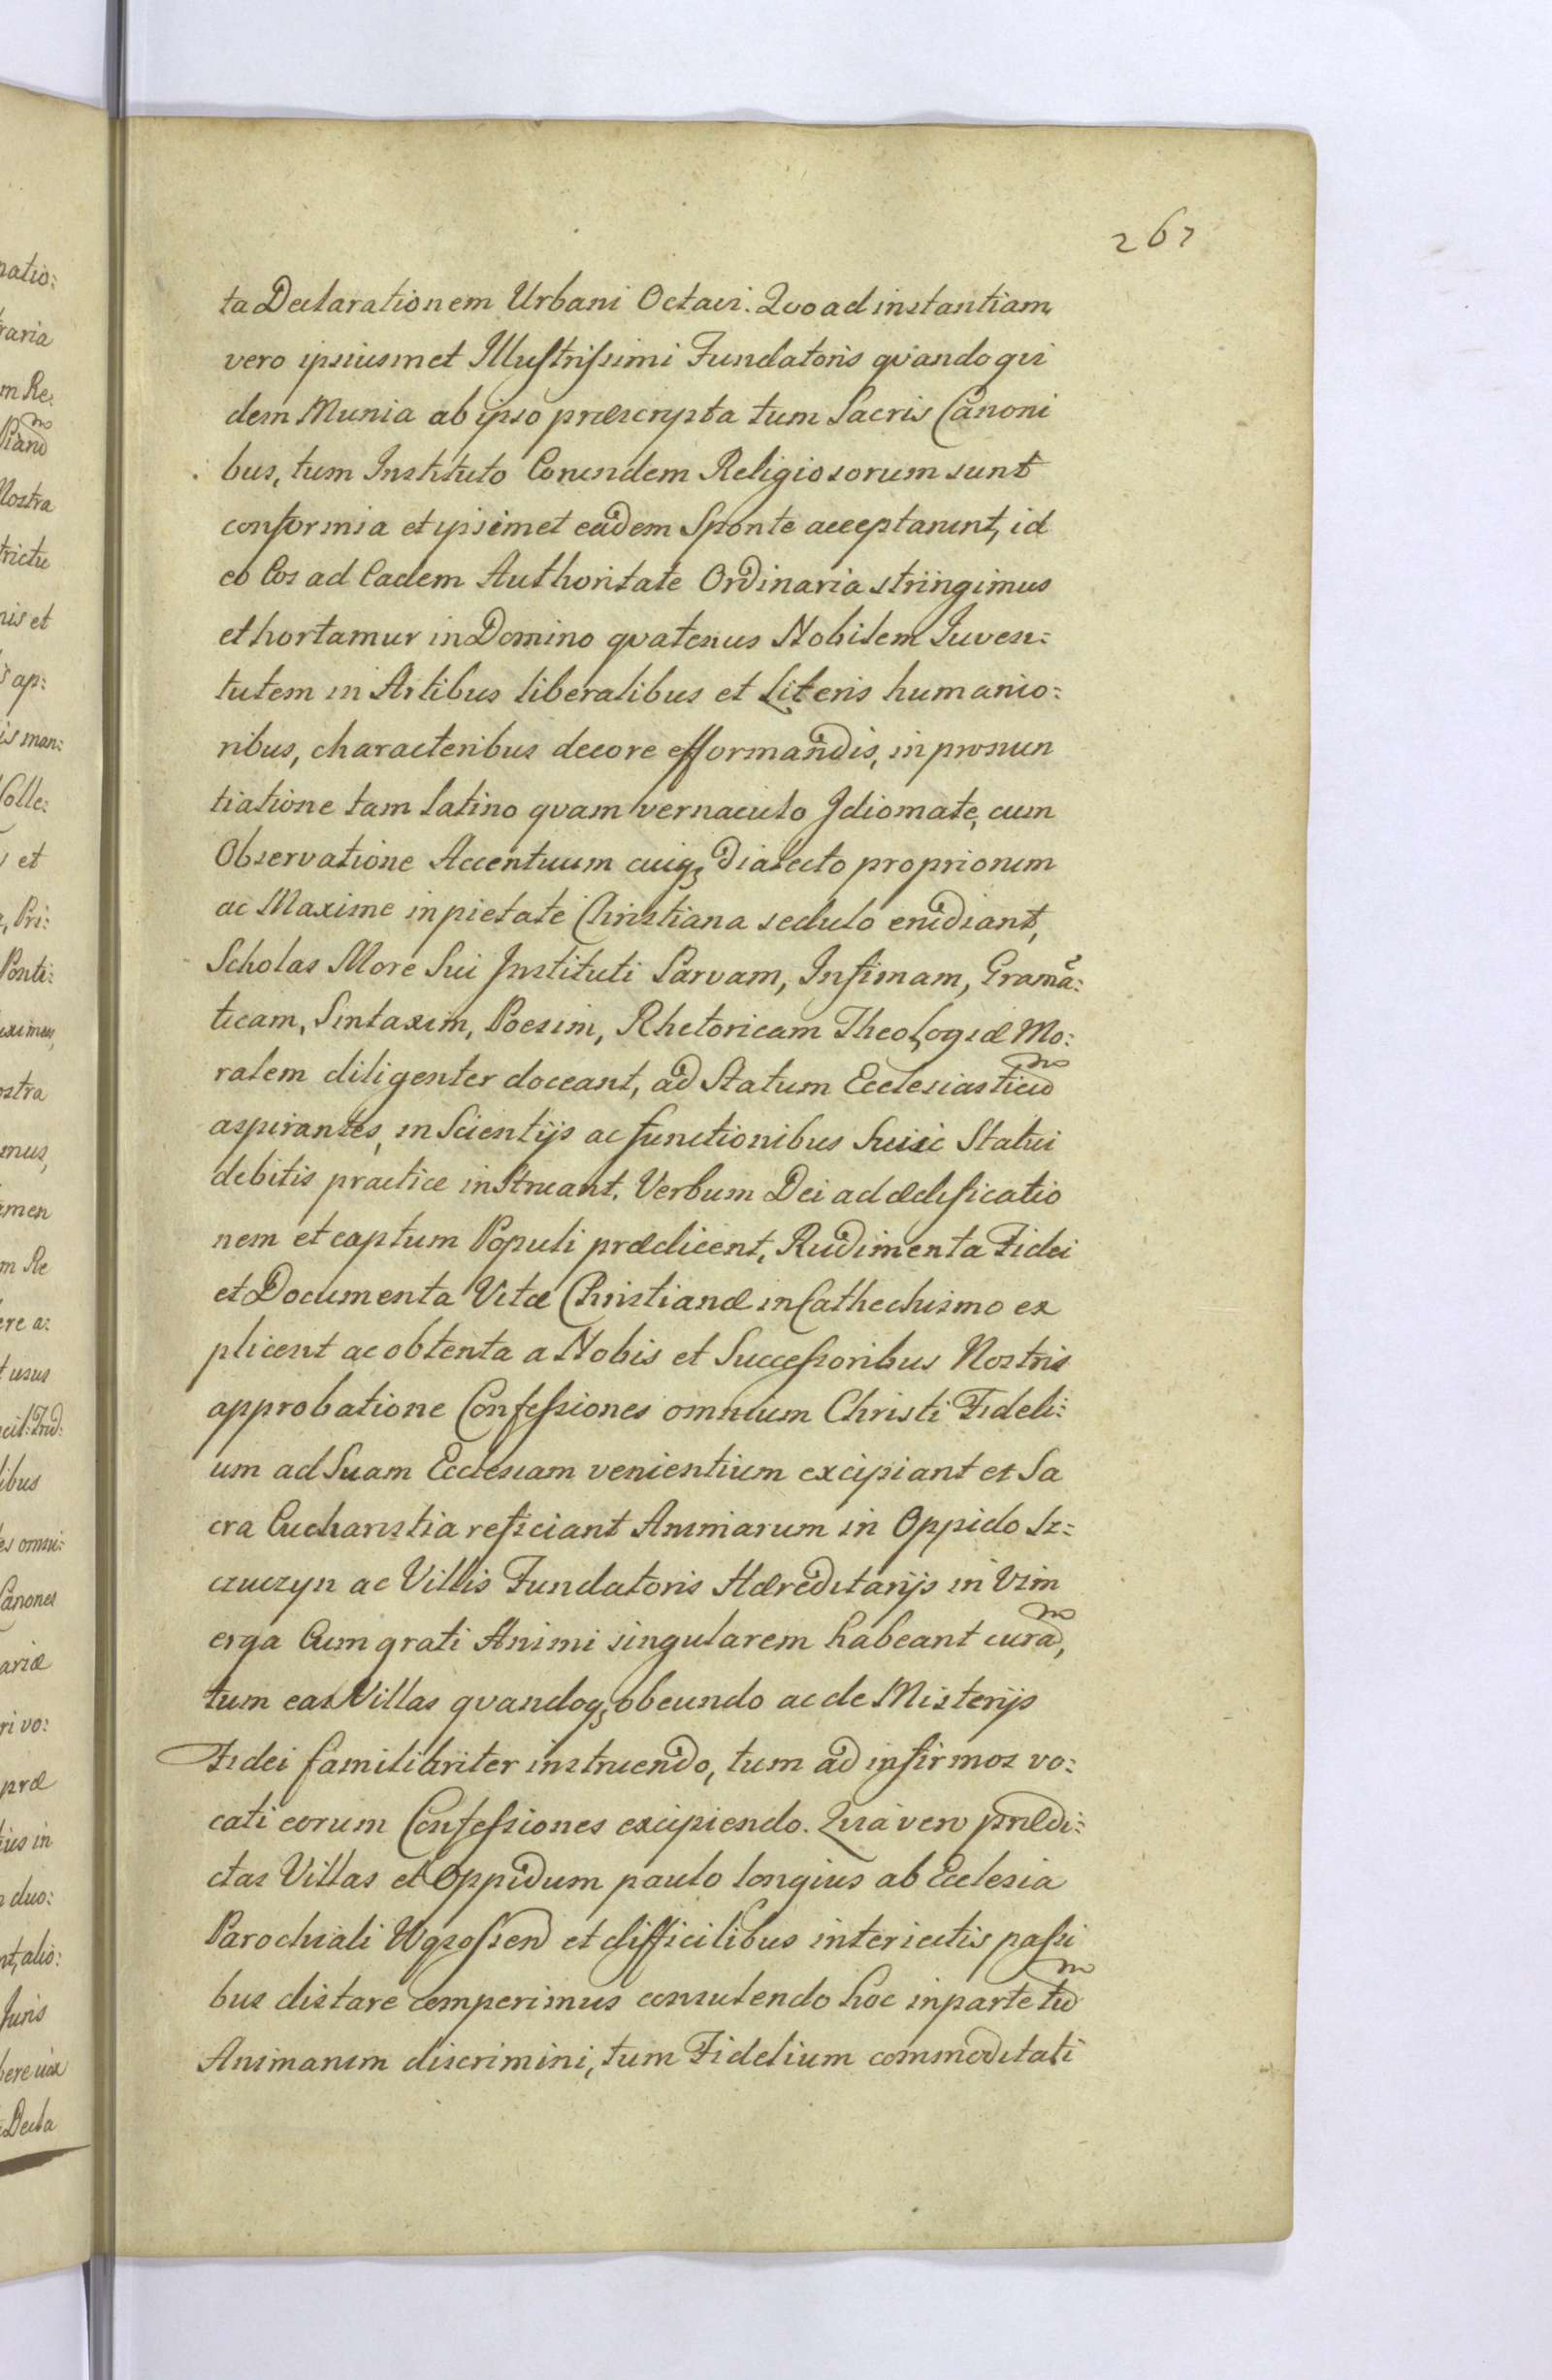 267
ta Declarationem Urbani Octavi. Quo ad instantiam
vero ipsiusmet Illustrissimi Fundatoris quandoqui
dem Munia ab ipso præscrypta tum Sacris Canoni
bus, tum Instituto Eorundem Religiosorum sunt
conformia et ipsimet eadem Sponte acceptarunt, id
eo Eos ad Eadem Authoritate Ordinaria stringimus
et hortamur in Domino quatenus Nobilem Juven:
tutem in Artibus liberalibus et Literis humanio:
ribus, characteribus decore efformandis, in pronun
tiatione tam latino quam vernaculo Idiomate, cum
Observatione Accentuum cuiq3 dialecto propriorum
ac Maxime in pietate Christiana sedulo erudiant,
Scholas More Sui Instituti Parvam, Infimam, Grama:
ticam, Sintaxim, Poesim, Rhetoricam Theologiæ Mo:
ralem diligenter doceant, ad Statum Ecclesiasticum
aspirantes, in Scientijs ac functionibus huic Statui
debitis practice instruant. Verbum Dei ad ædificatio
nem et captum Populi prædicent, Rudimenta Fidei
et Documenta Vitæ Christianæ in Cathechismo ex
plicent ac obtenta a Nobis et Successoribus Nostris
approbatione Confessiones omnium Christi Fideli:
um ad Suam Ecclesiam venientium excipiant et Sa
cra Eucharistia reficiant Animarum in Oppido Sz:
czuczyn ac Villis Fundatoris Hæreditarijs in Vim
erga Eum grati Animi singularem habeant curam,
tum eas Villas quandoq3 obeundo ac de Misterijs
Fidei familiariter instruendo, tum ad infirmos vo:
cati eorum Confessiones excipiendo. Quia vero prædi:
ctas Villas et Oppidum paulo longius ab Ecclesia
Parochiali Wąsossen et difficilibus interiectis passi
bus distare comperimus consulendo hoc in parte tum
Animarum discrimini, tum Fidelium commoditati